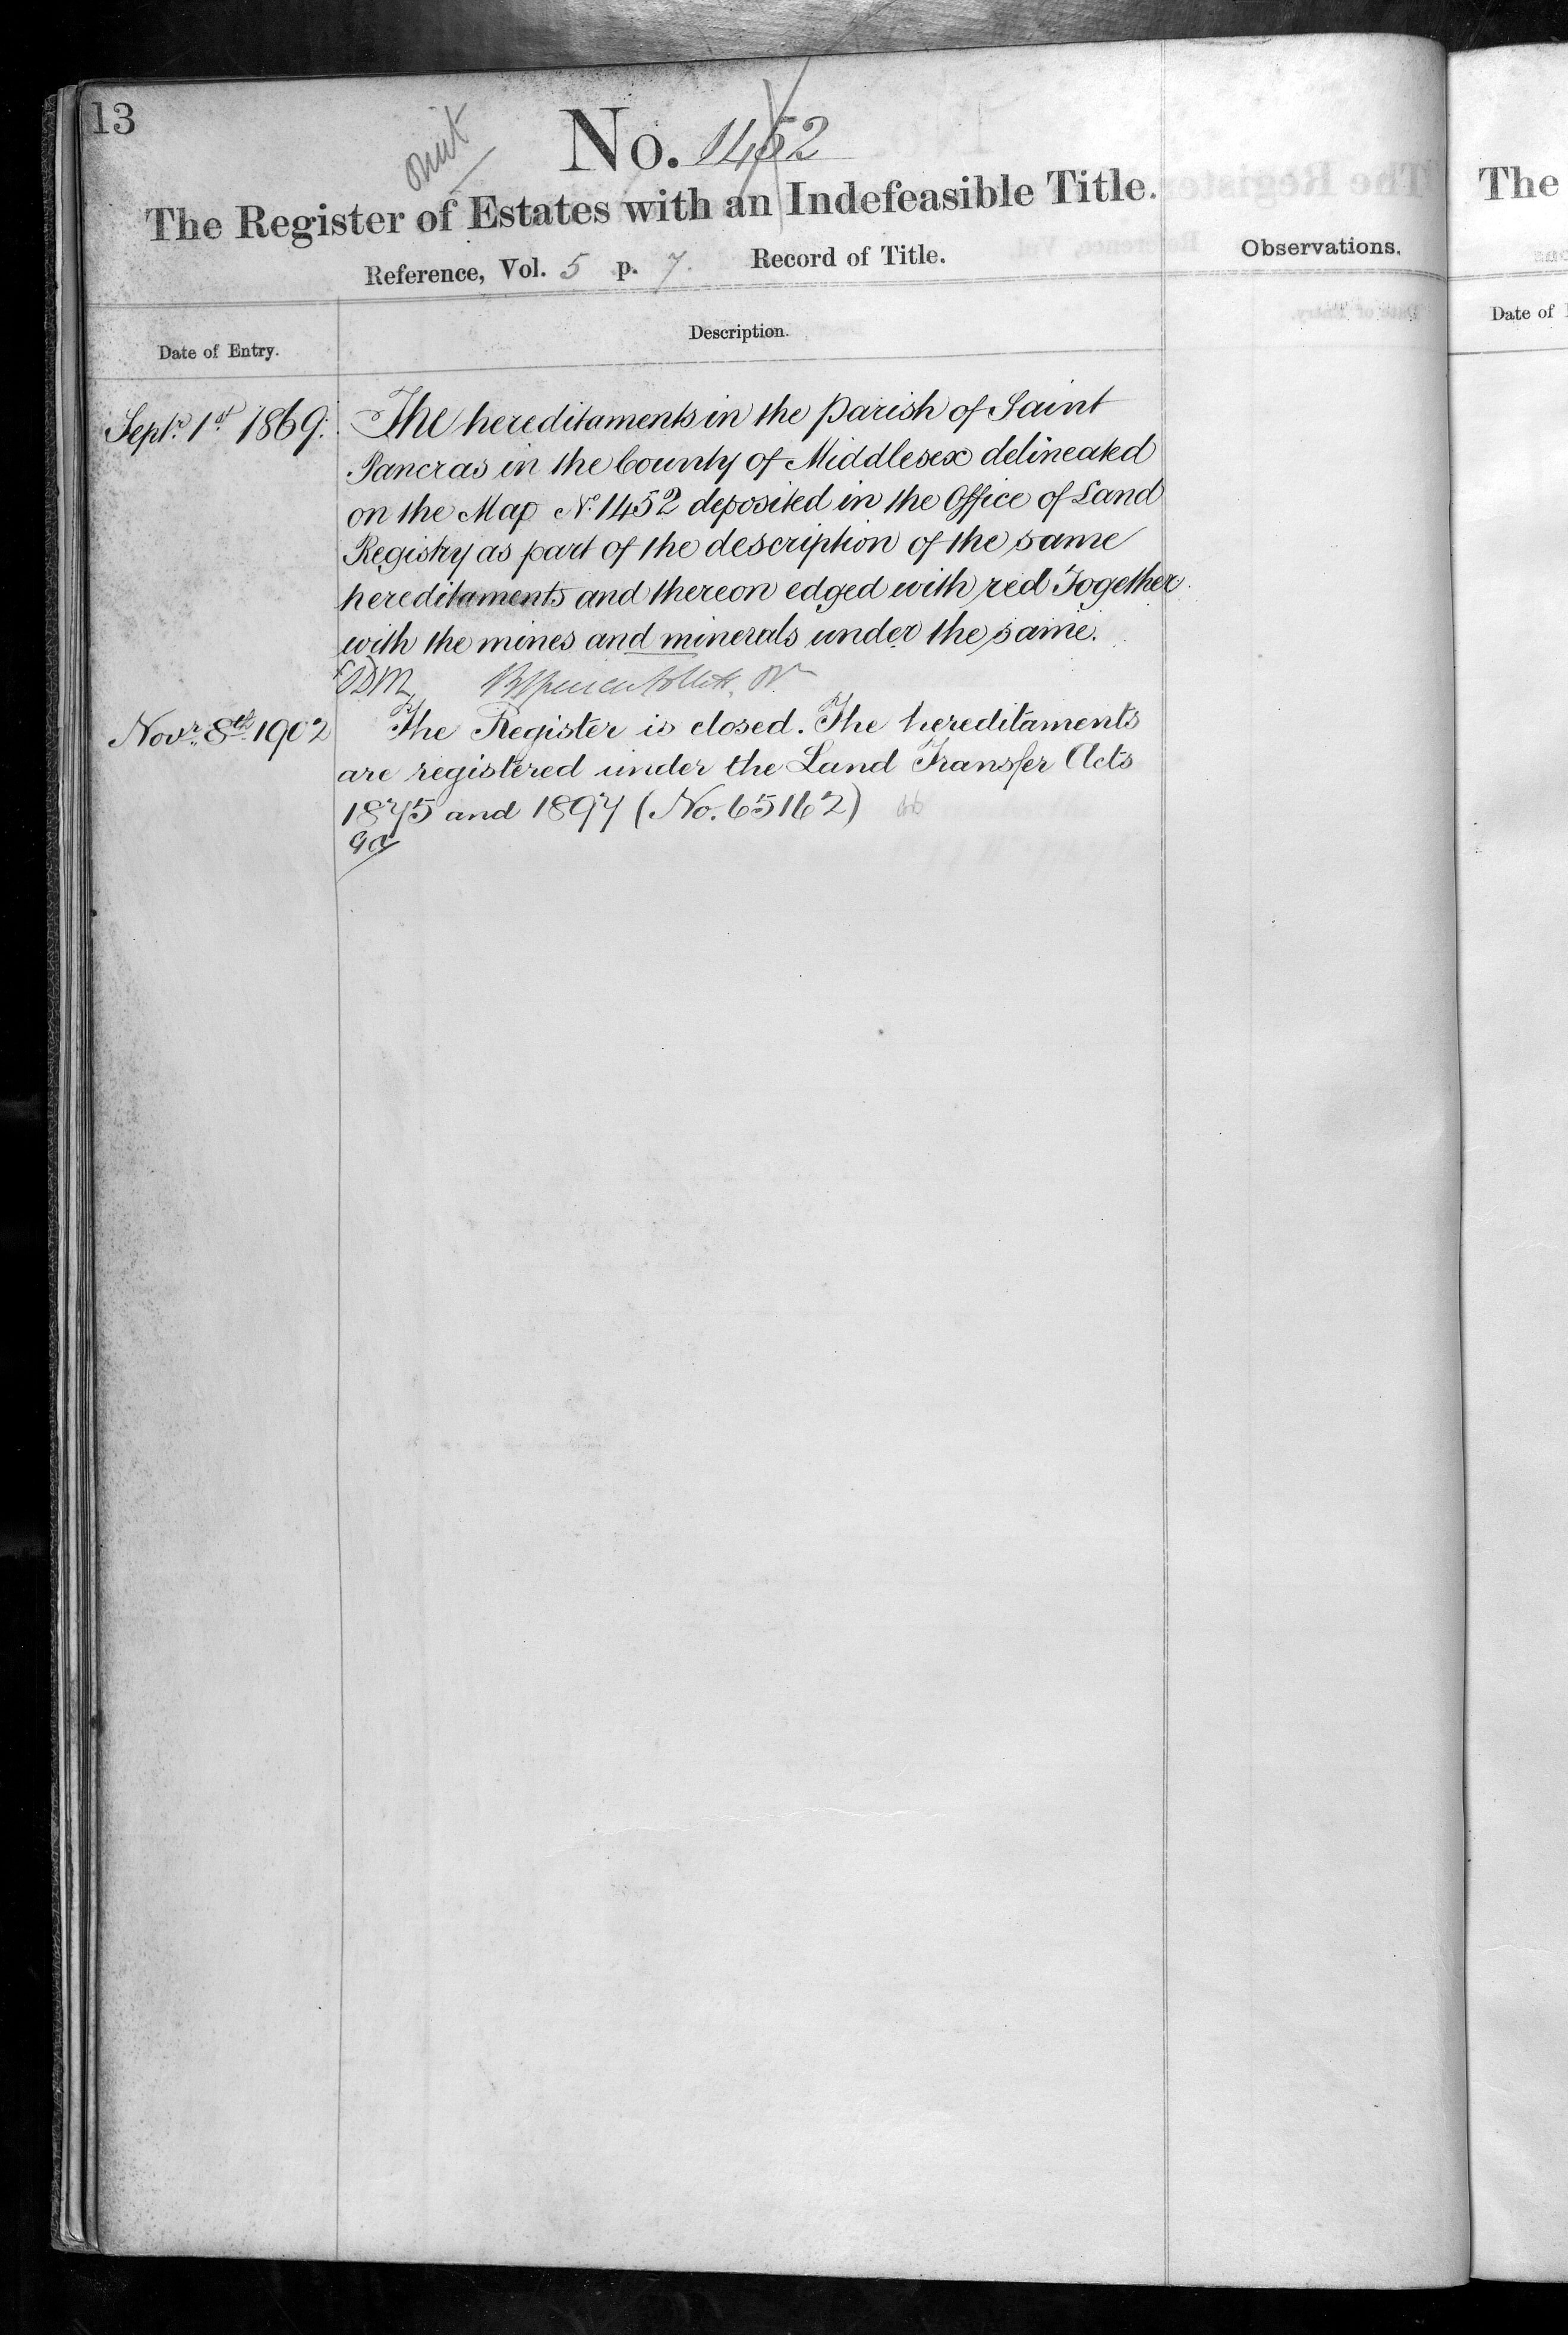 13
omit
No. 1452
The Register of Estates with an Indefeasible Title.
Reference, Vol. 5 p. 7. Record of Title.
Observations.
Date of Entry.
Description.
Septr. 1st 1869.
The hereditaments in the parish of Saint
Pancras in the County of Middlesex delineated
on the Map No. 1452 deposited in the Office of Land
Registry as part of the description of the same
hereditaments and thereon edged with red Together
with the mines and minerals under the same.
Novr. 8th 1902
The Register is closed. The hereditaments
are registered under the Land Transfer Acts
1875 and 1897 (No. 65162)
The
Date of